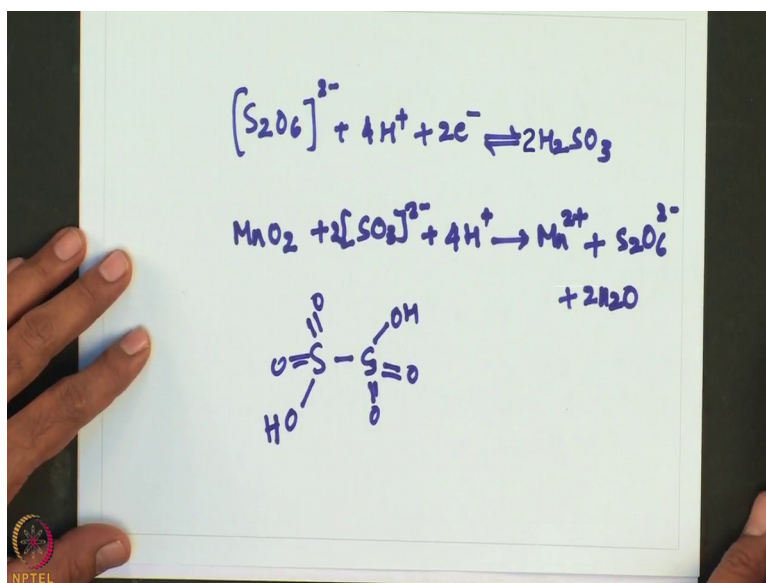 [S2O6]^2- + 4H^+ + 2e^- ⇌ 2H2SO3
MnO2 + 2[SO3]^2- + 4H^+ → Mn^2+ + S2O6^2-
+ 2H2O
O
OH
O=S-S=O
HO
O
NPTEL